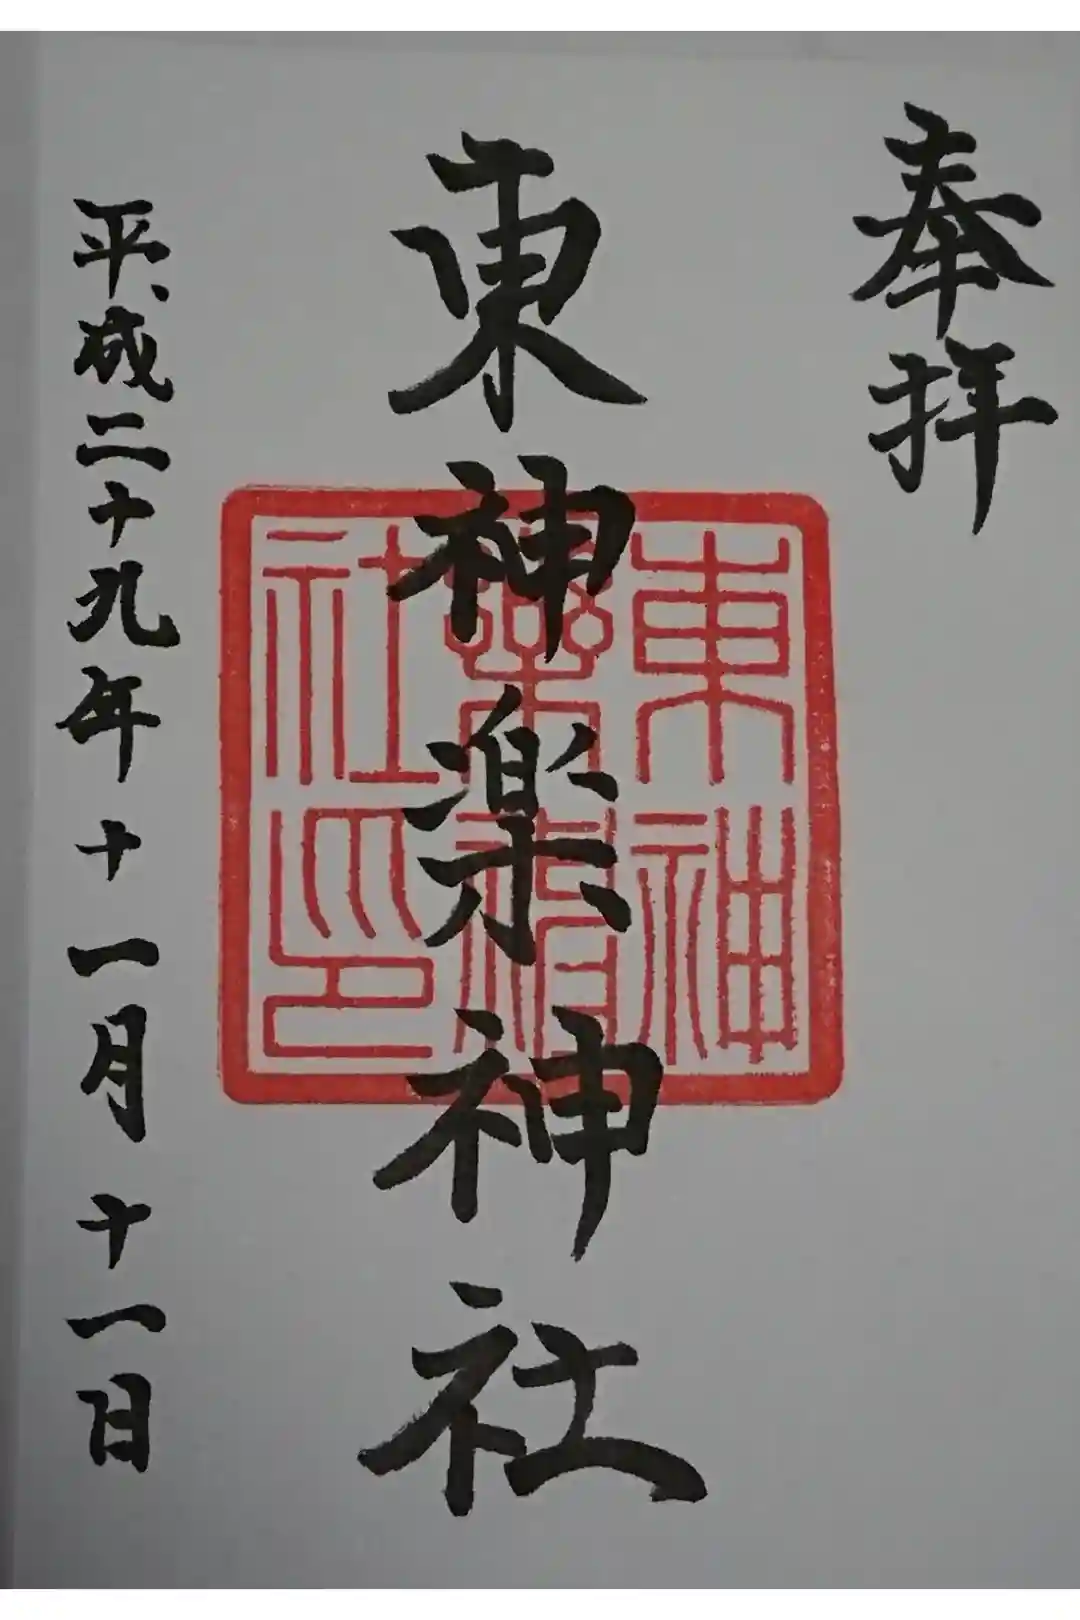 奉拝
東神楽神社
東神
樂神
社印
平成二十九年十一月十一日